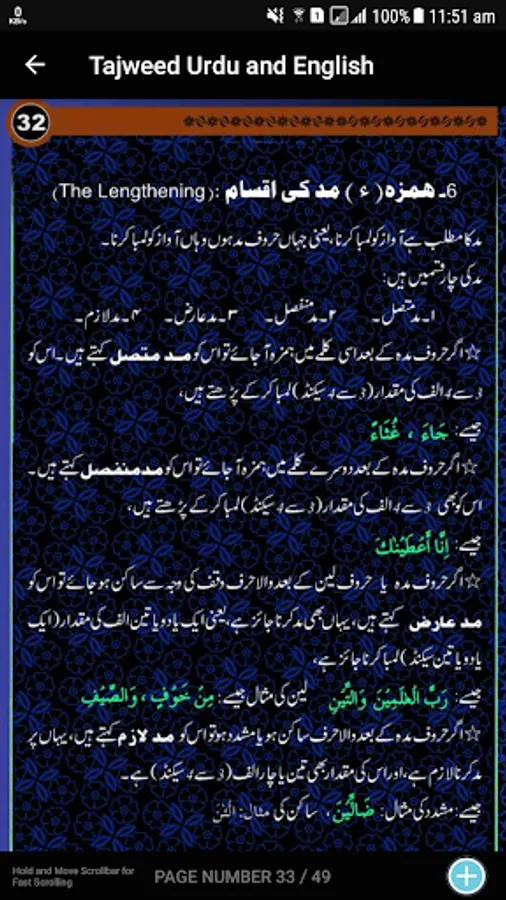 0
KB/s
1
100%
11:51 am
Tajweed Urdu and English
32
6۔ ھمزہ( ء ) مد کی اقسام :(The Lengthening)
مد کا مطلب ہے آواز کو لمبا کرنا، یعنی جہاں حروف مدہ ہوں وہاں آواز کو لمبا کرنا۔
مد کی چار قسمیں ہیں:
۱۔ مد متصل۔ ۲۔ مد منفصل۔ ۳۔ مد عارض۔ ۴۔ مد لازم۔
☆ اگر حروف مدہ کے بعد اسی کلمے میں ہمزہ آ جائے تو اس کو مد متصل کہتے ہیں۔ اس کو
3 سے 4 الف کی مقدار (3 سے 4 سیکنڈ) لمبا کر کے پڑھتے ہیں،
جیسے: جَاءَ ، غُثَاءً
☆ اگر حروف مدہ کے بعد دوسرے کلمے میں ہمزہ آ جائے تو اس کو مد منفصل کہتے ہیں۔
اس کو بھی 3 سے 4 الف کی مقدار (3 سے 4 سیکنڈ) لمبا کر کے پڑھتے ہیں،
جیسے: اِنَّا أَعْطَيْنٰكَ
☆ اگر حروف مدہ یا حروف لین کے بعد والا حرف وقف کی وجہ سے ساکن ہو جائے تو اس کو
مد عارض کہتے ہیں، یہاں بھی مد کرنا جائز ہے، یعنی ایک یا دو یا تین الف کی مقدار (ایک
یا دو یا تین سیکنڈ) لمبا کرنا جائز ہے،
جیسے: رَبِّ الْعٰلَمِيْنَ وَالتِّيْنِ لین کی مثال جیسے: مِنْ خَوْفٍ ، وَالصَّيْفِ
☆ اگر حروف مدہ کے بعد والا حرف ساکن ہو یا مشدد ہو تو اس کو مد لازم کہتے ہیں، یہاں پر
مد کرنا لازم ہے، اور اس کی مقدار بھی تین یا چار الف (3 سے 4 سیکنڈ) ہے۔
جیسے: مشدد کی مثال: ضَالِّيْنَ، ساکن کی مثال:
Hold and Move Scrollbar for
Fast Scrolling
PAGE NUMBER 33 / 49